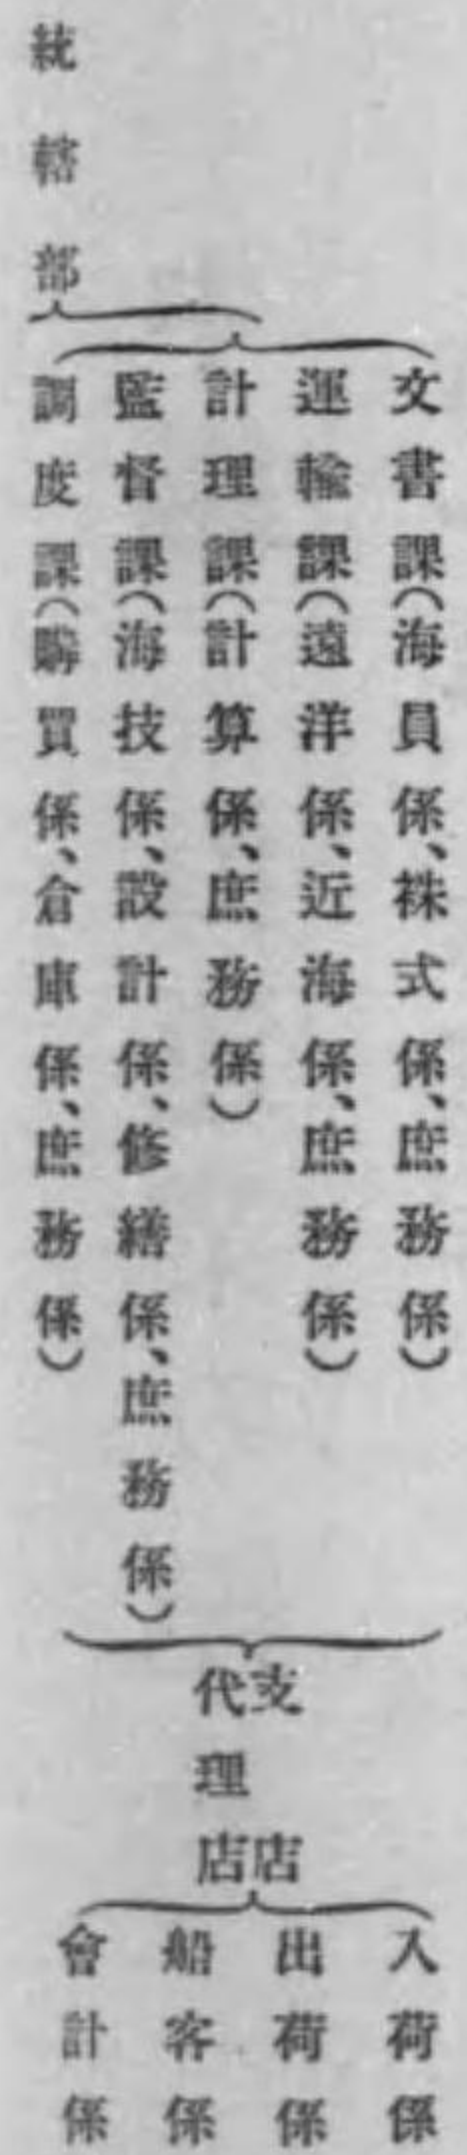 統轄部
文書課（海員係、株式係、庶務係）
運輸課（遠洋係、近海係、庶務係）
計理課（計算係、庶務係）
監督課（海技係、設計係、修繕係、庶務係）
調度課（購買係、倉庫係、庶務係）
支店
代理店
入荷係
出荷係
船客係
會計係